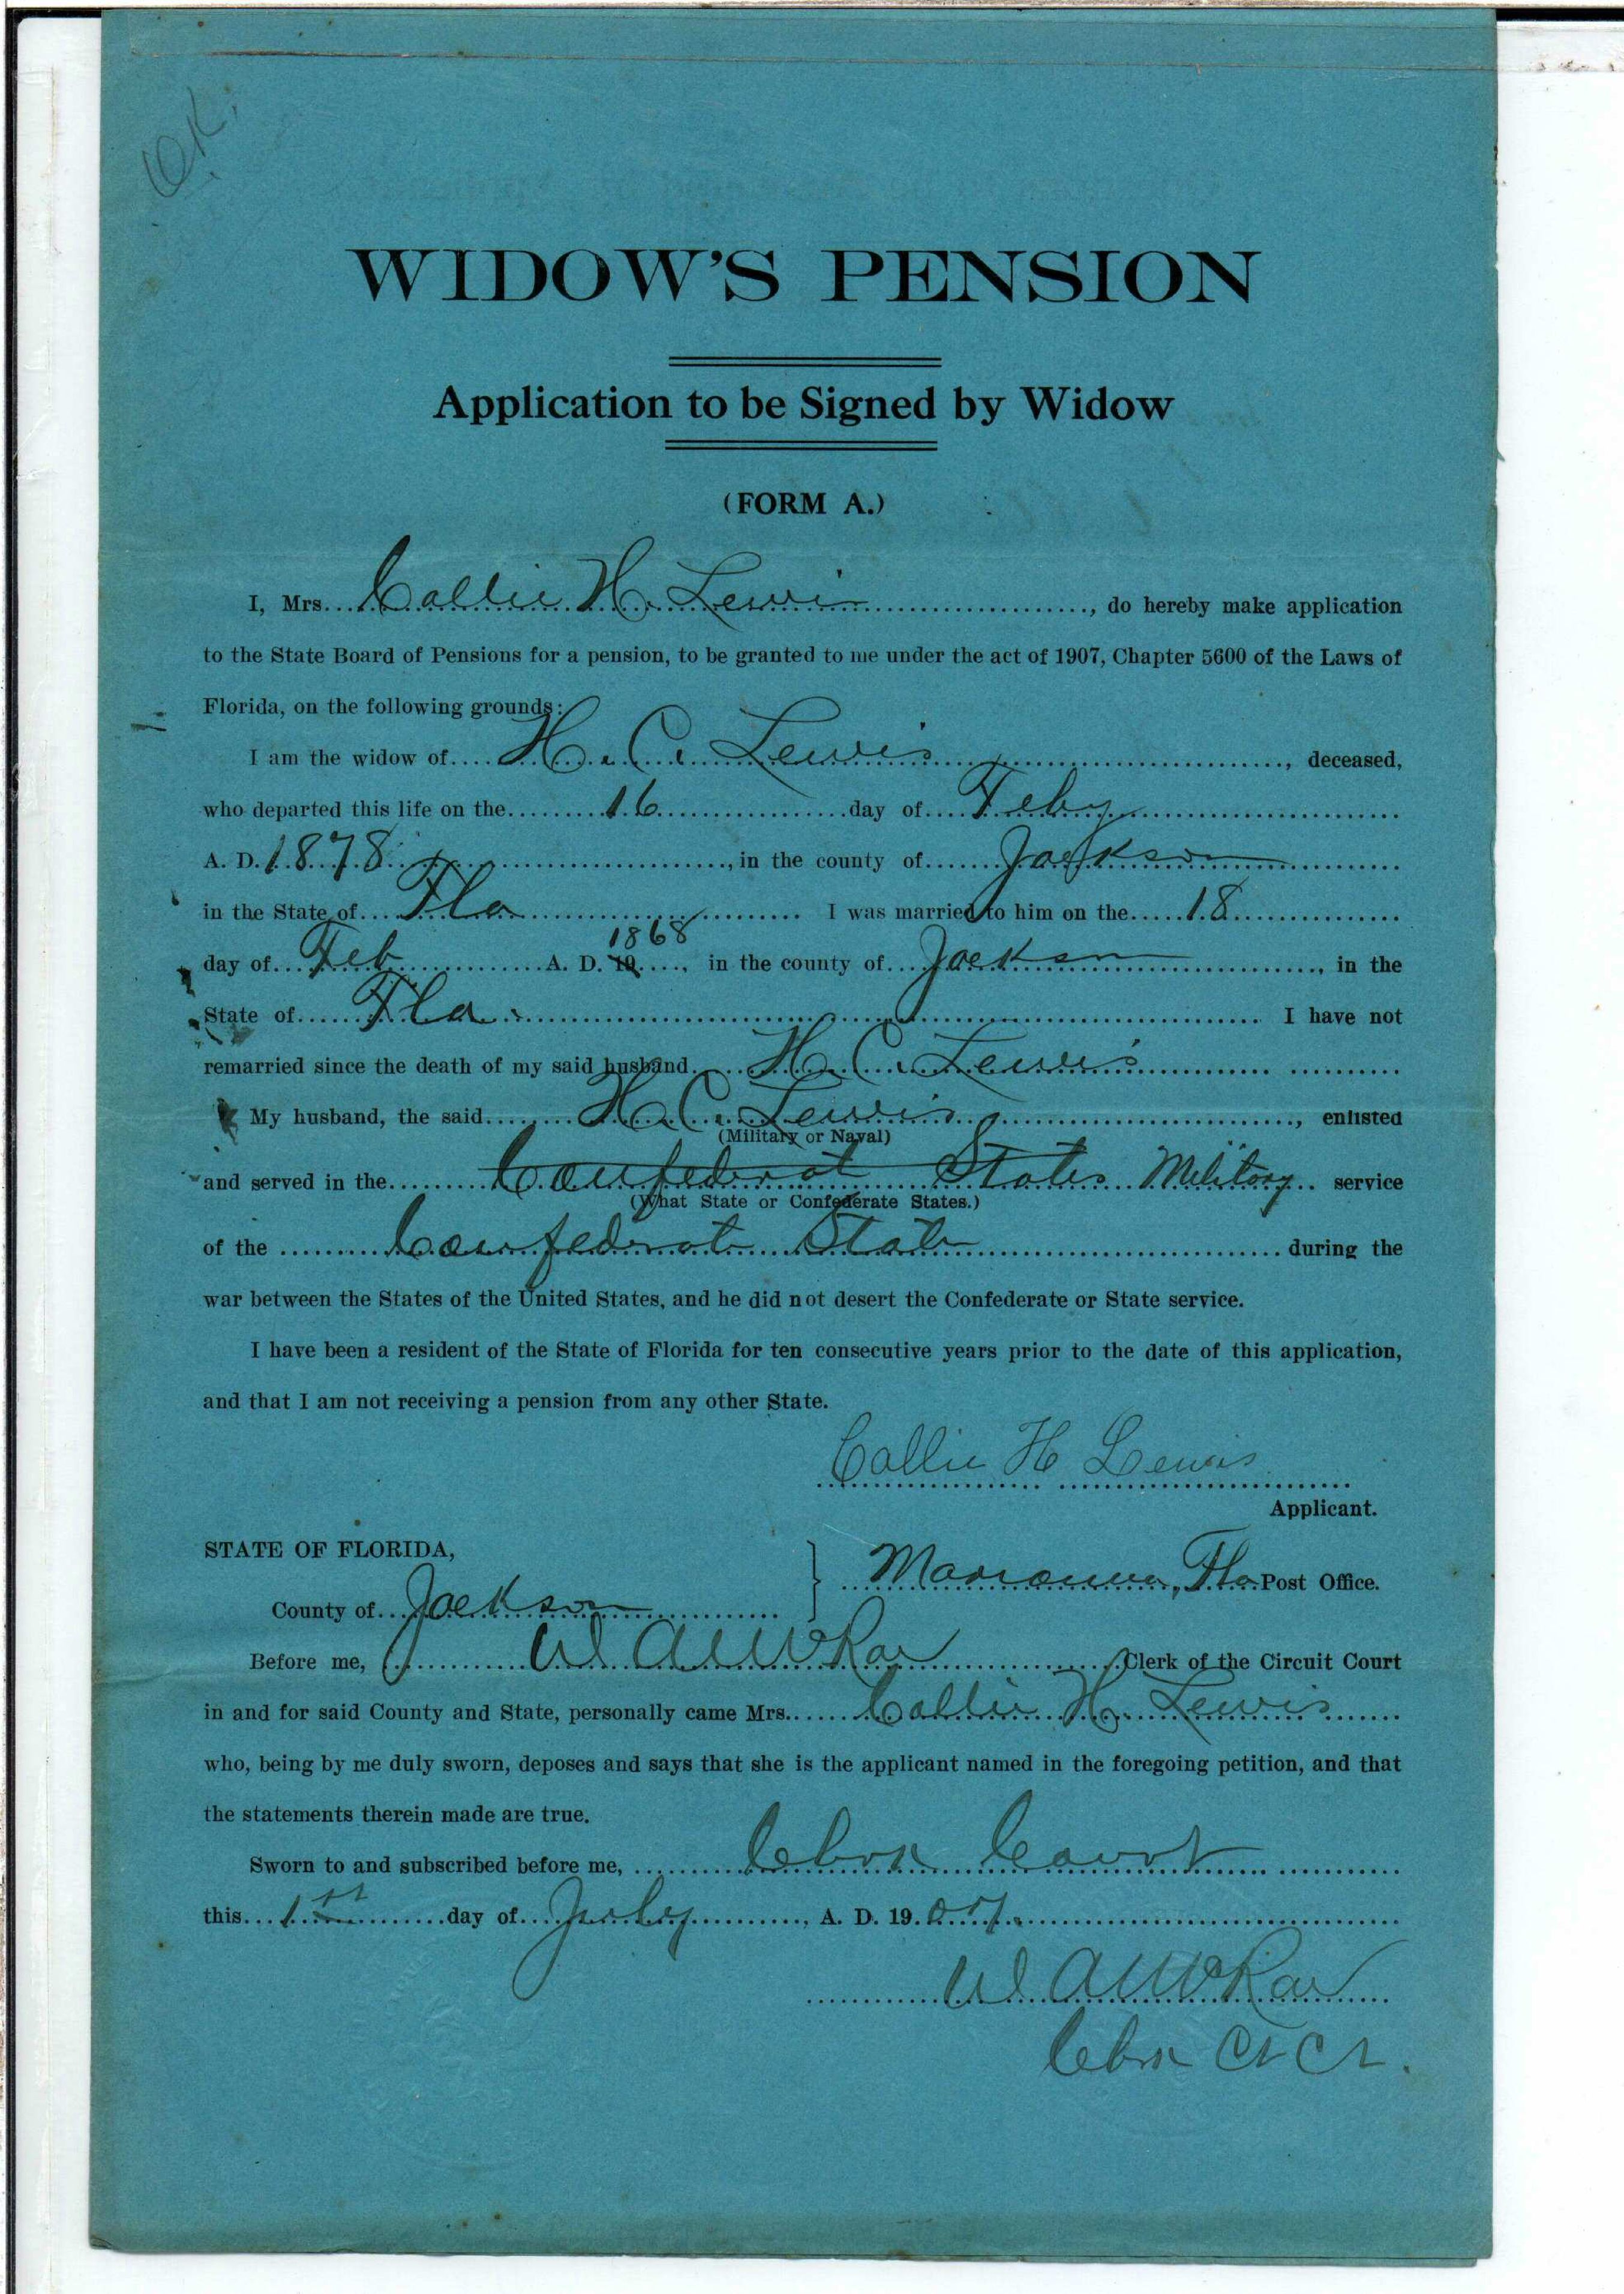 O.K.
WIDOW'S PENSION
Application to be Signed by Widow
(FORM A.)
I, Mrs. Callie H. Lewis, do hereby make application
to the State Board of Pensions for a pension, to be granted to me under the act of 1907, Chapter 5600 of the Laws of
Florida, on the following grounds:
I am the widow of H. C. Lewis, deceased,
who departed this life on the 16 day of Feby
A. D. 1878, in the county of Jackson
in the State of Fla I was married to him on the 18
day of Feb A. D. 19 1868, in the county of Jackson, in the
State of Fla. I have not
remarried since the death of my said husband H. C. Lewis
My husband, the said H. C. Lewis, enlisted
(Military or Naval)
and served in the Confederat States Military service
(What State or Confederate States.)
of the Confederate State during the
war between the States of the United States, and he did not desert the Confederate or State service.
I have been a resident of the State of Florida for ten consecutive years prior to the date of this application,
and that I am not receiving a pension from any other State.
Callie H Lewis
Applicant.
STATE OF FLORIDA,
Marianna, Fla Post Office.
County of Jackson
Before me, Clerk of the Circuit Court
in and for said County and State, personally came Mrs. Callie H. Lewis
who, being by me duly sworn, deposes and says that she is the applicant named in the foregoing petition, and that
the statements therein made are true.
Sworn to and subscribed before me, Court
this 1st day of July, A. D. 1907.